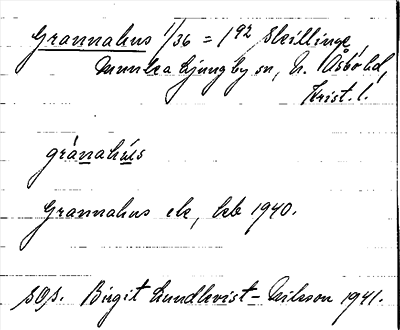 Grannahus 1/36 = 1⁹² Skillinge,
Munka Ljungby sn, N. Åsbo hd,
Krist. l.
grànahús
Grannahus ek, kb 1940.
SOA. Birgit Lundkvist-Nilsson 1941.